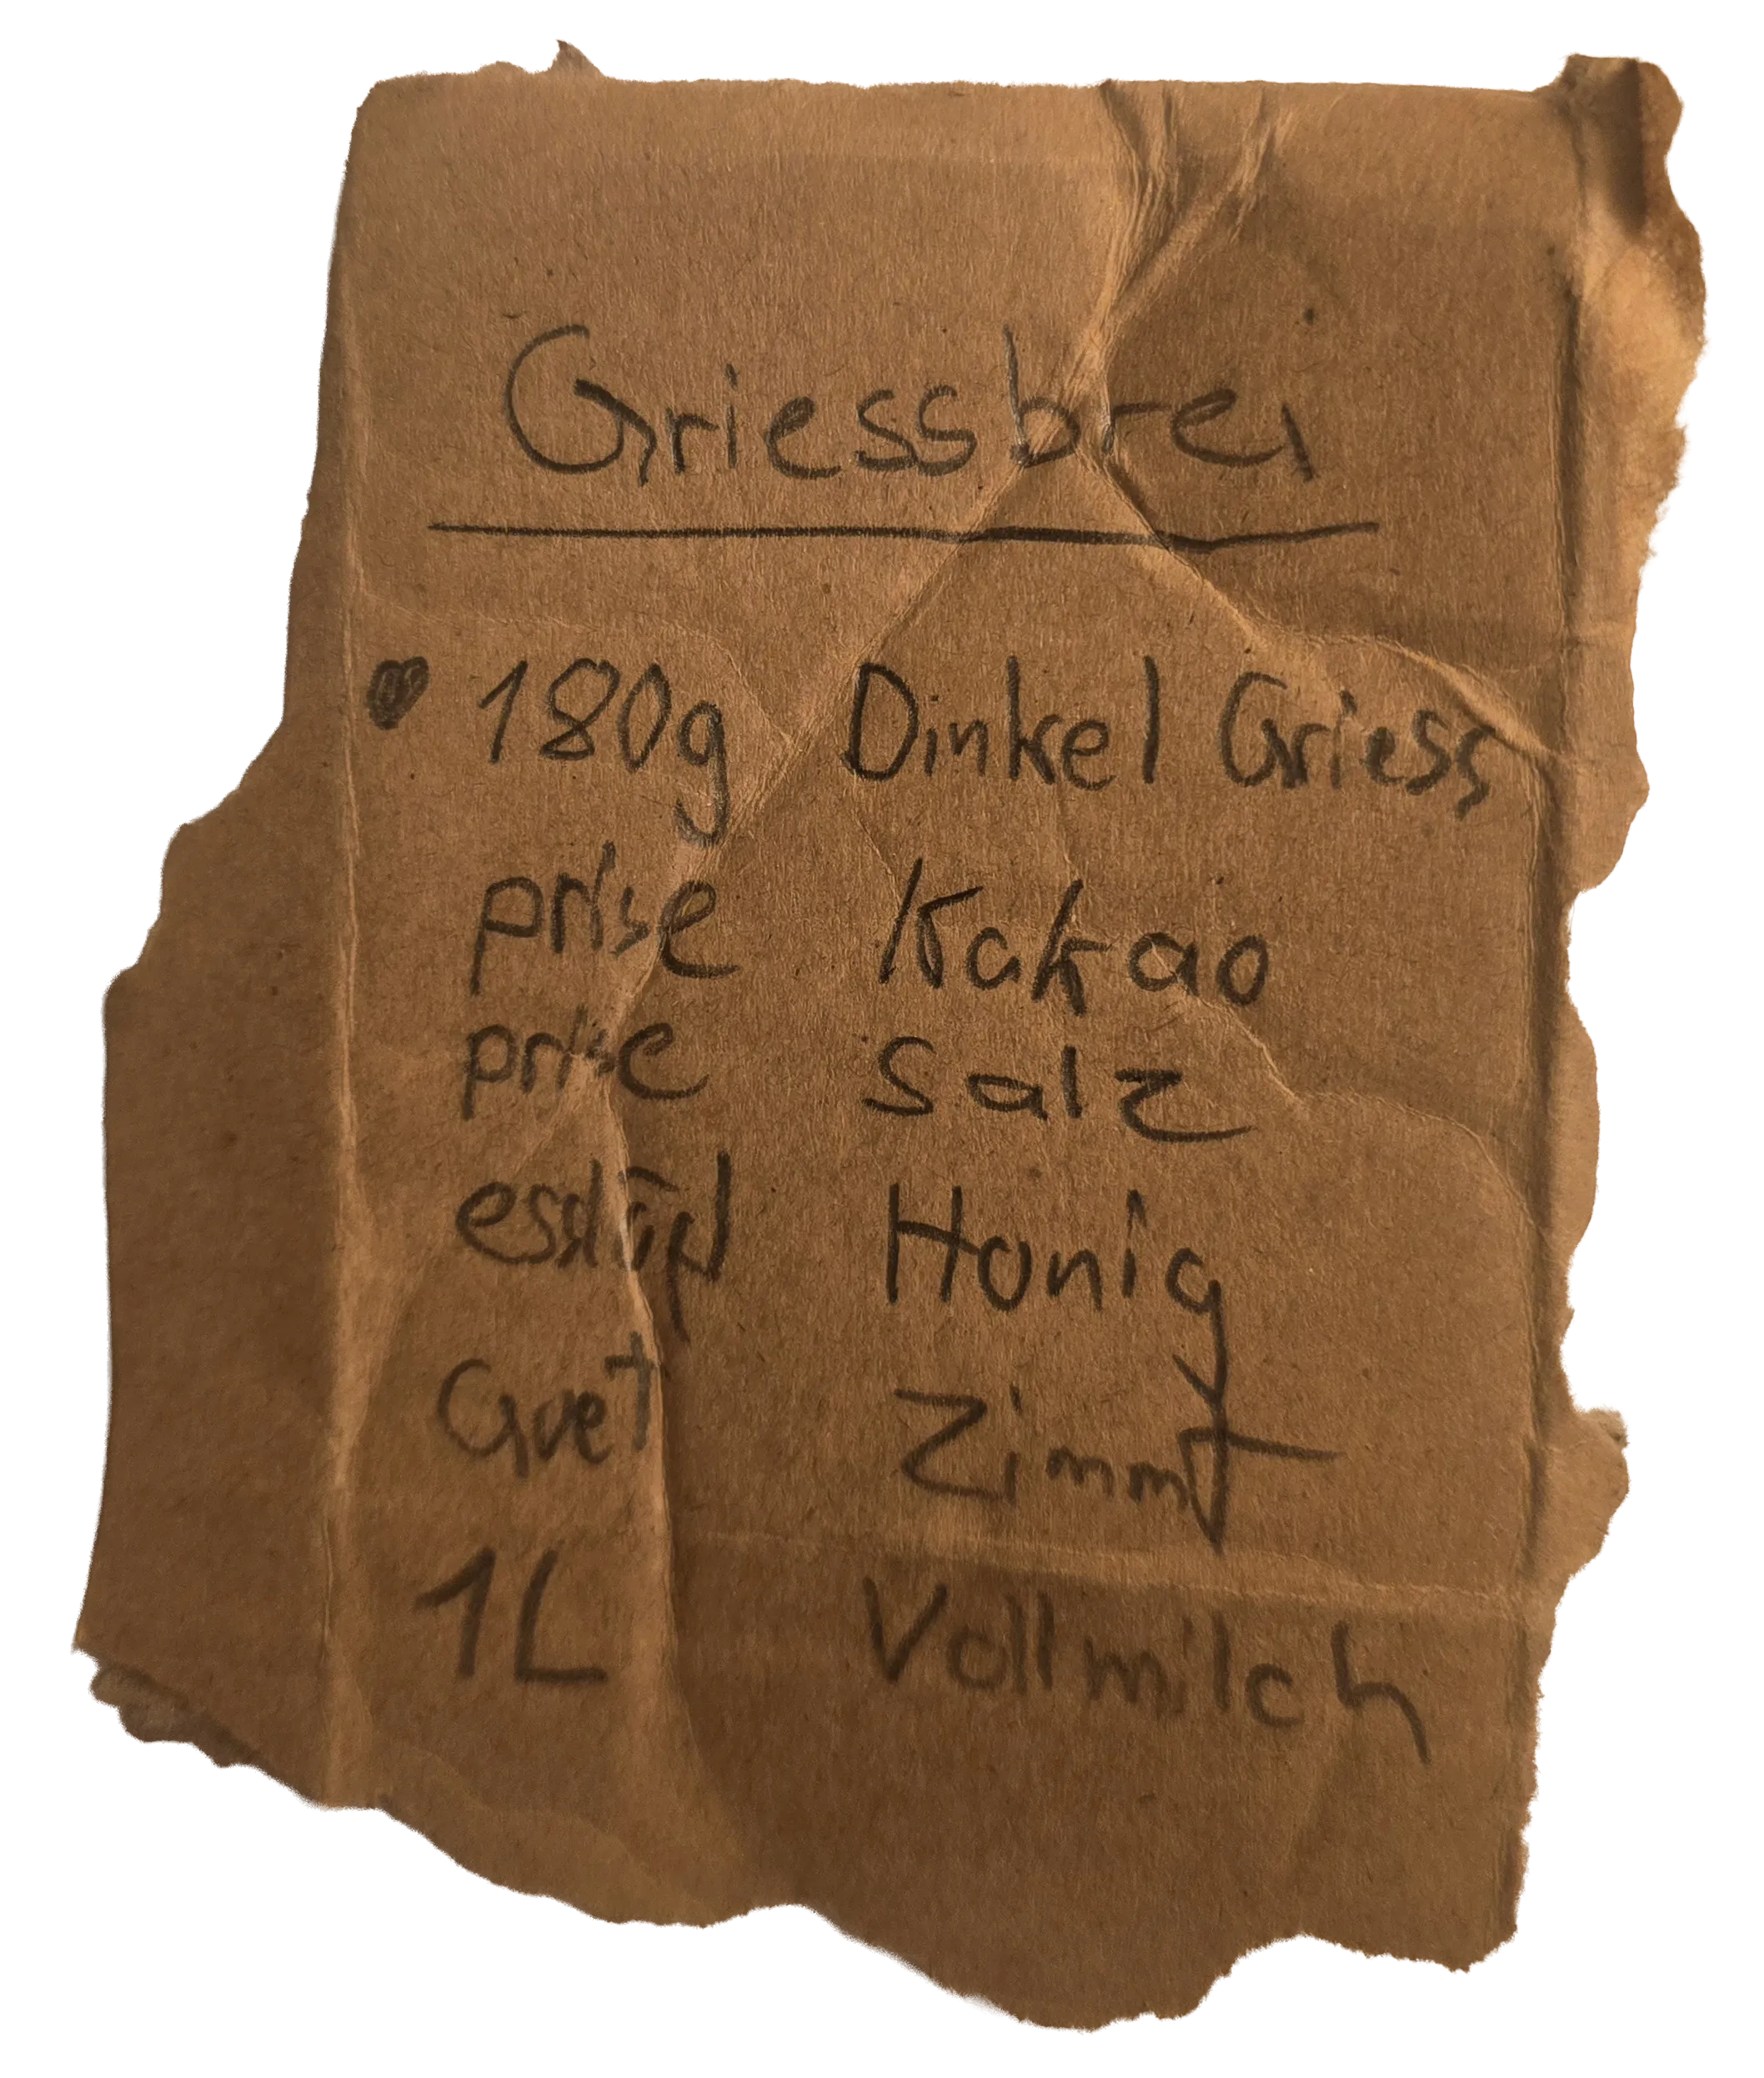 Griessbrei
180g Dinkel Griess
prise Kakao
prise Salz
Honig
Guet Zimmt
1L Vollmilch